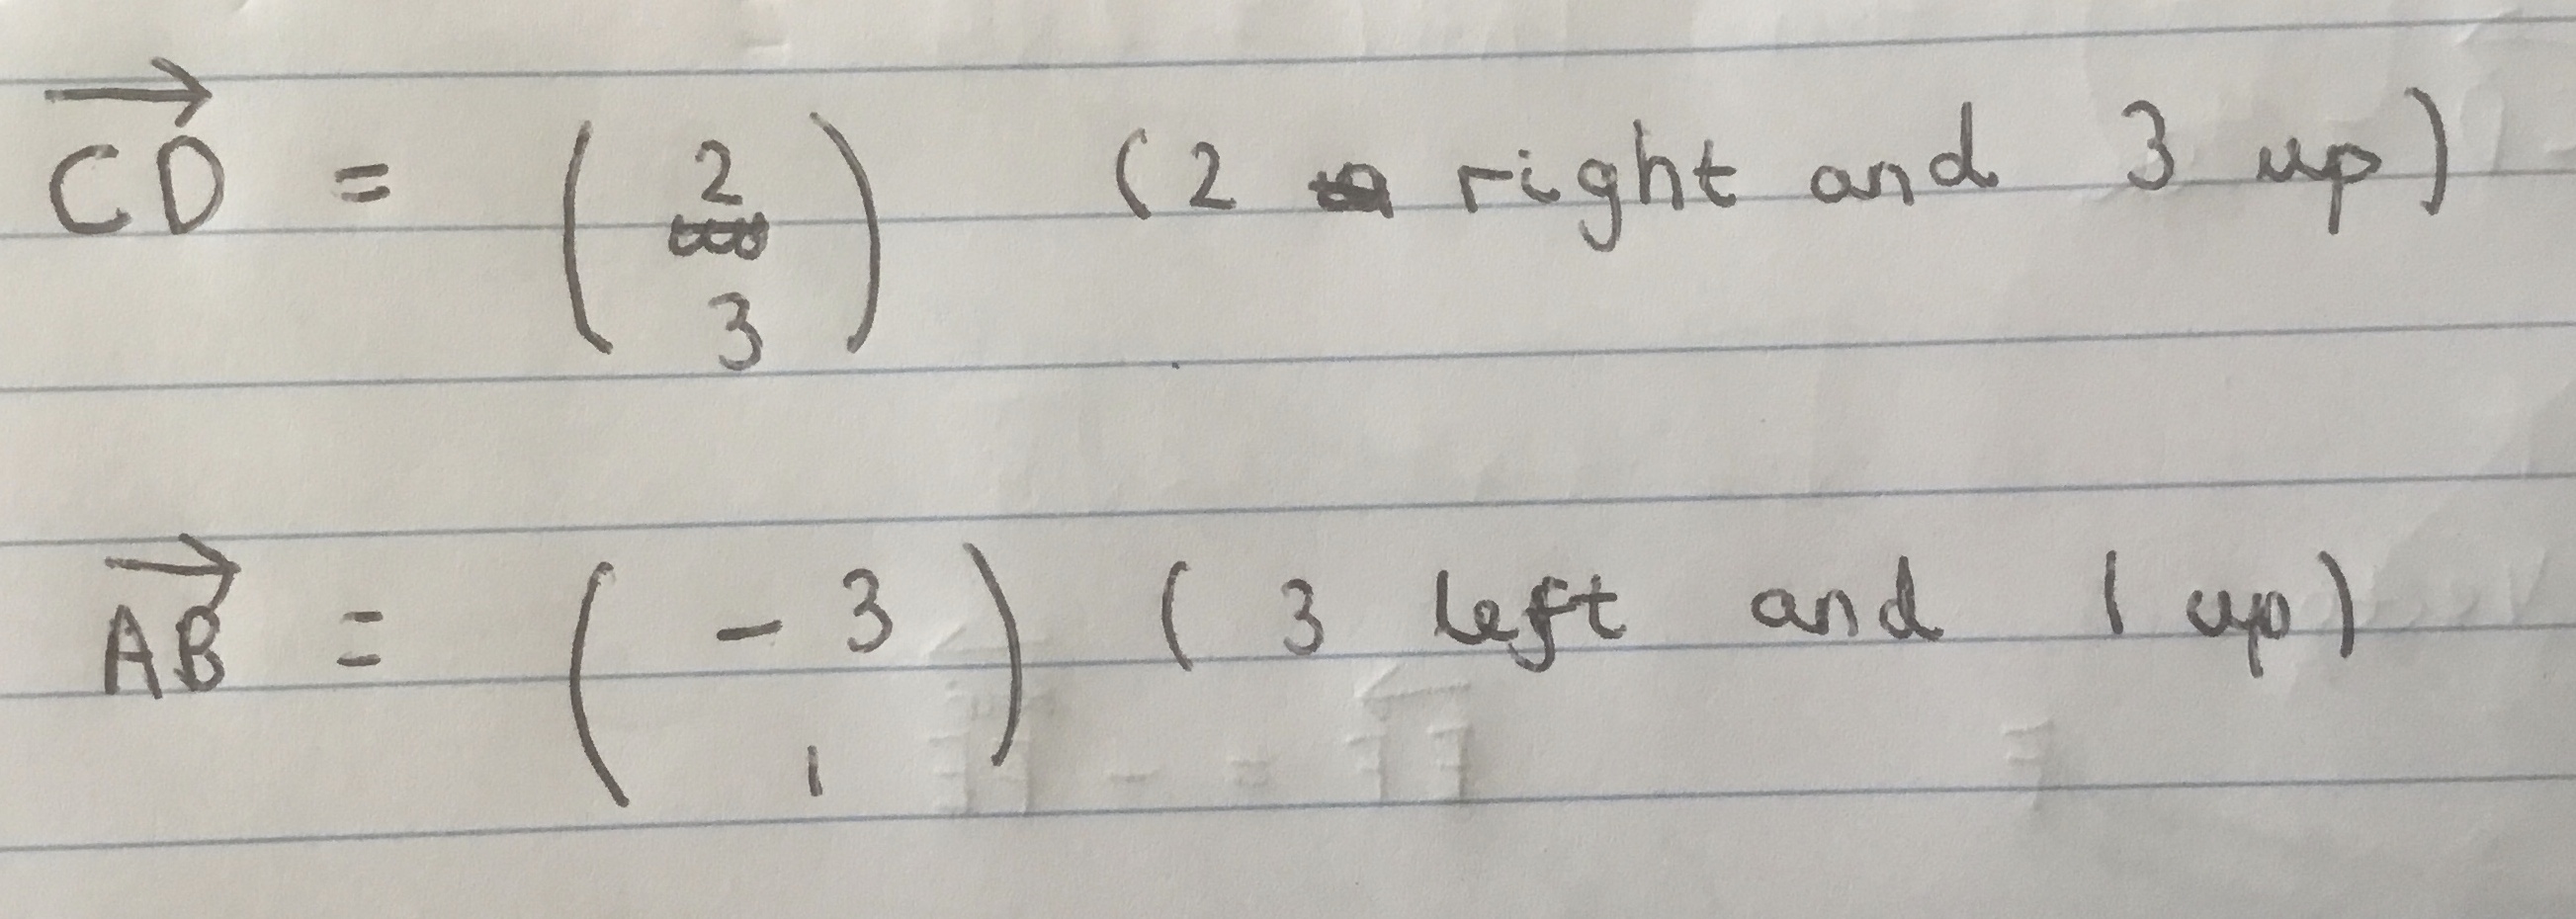 CD = ( 2 3 ) (2 right and 3 up)
AB = ( -3 1 ) ( 3 left and 1 up)